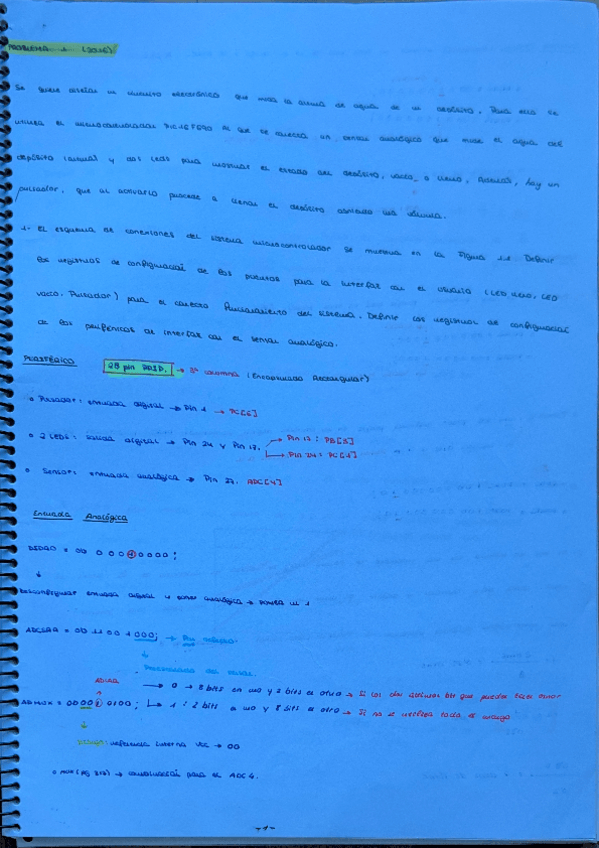 PROBLEMA 1 (2016)
Se quiere diseñar un circuito electrónico que mida la altura de agua de un depósito. Para ello se
utiliza el microcontrolador al que se conecta un sensor analógico que mide el agua del
depósito (altura) y dos leds para mostrar el estado del depósito, vacío o lleno. Además, hay un
pulsador, que al activarlo procede a llenar el depósito abriendo una válvula.
1. El esquema de conexiones del sistema microcontrolador se muestra en la Figura 1.1. Definir
los registros de configuración de los puertos para la interfaz con el usuario (LED lleno, LED
vacío, Pulsador) para el correcto funcionamiento del sistema. Definir los registros de configuración
de los periféricos de interfaz con el sensor analógico.
PERIFÉRICO 28 pin PDIP. → columna (Encapsulado Rectangular)
Pulsador: entrada digital → Pin 1 → PC[6]
2 LEDs: salida digital → Pin 24 y Pin 17. Pin 17: PB[3]
Pin 24: PC[1]
Sensor: entrada analógica → Pin 27. ADC[4]
Entrada Analógica
DIDR0 = 0b 0 0 0 1 0 0 0 0;
Desconfigurar entrada digital y poner analógica → poner un 1
ADCSRA = 0b 1100 1 000;
Preescalado del
ADLAR → 0 → 8 bits en uno y 2 bits en otro → Si los dos últimos bits que puedes
ADMUX = 0b 00 0 0 0100; → 1: 2 bits a uno y 8 bits a otro → Si no se necesita todo el rango
referencia interna Vcc → 00
MUX (pg ) → combinación para el ADC4.
-1-